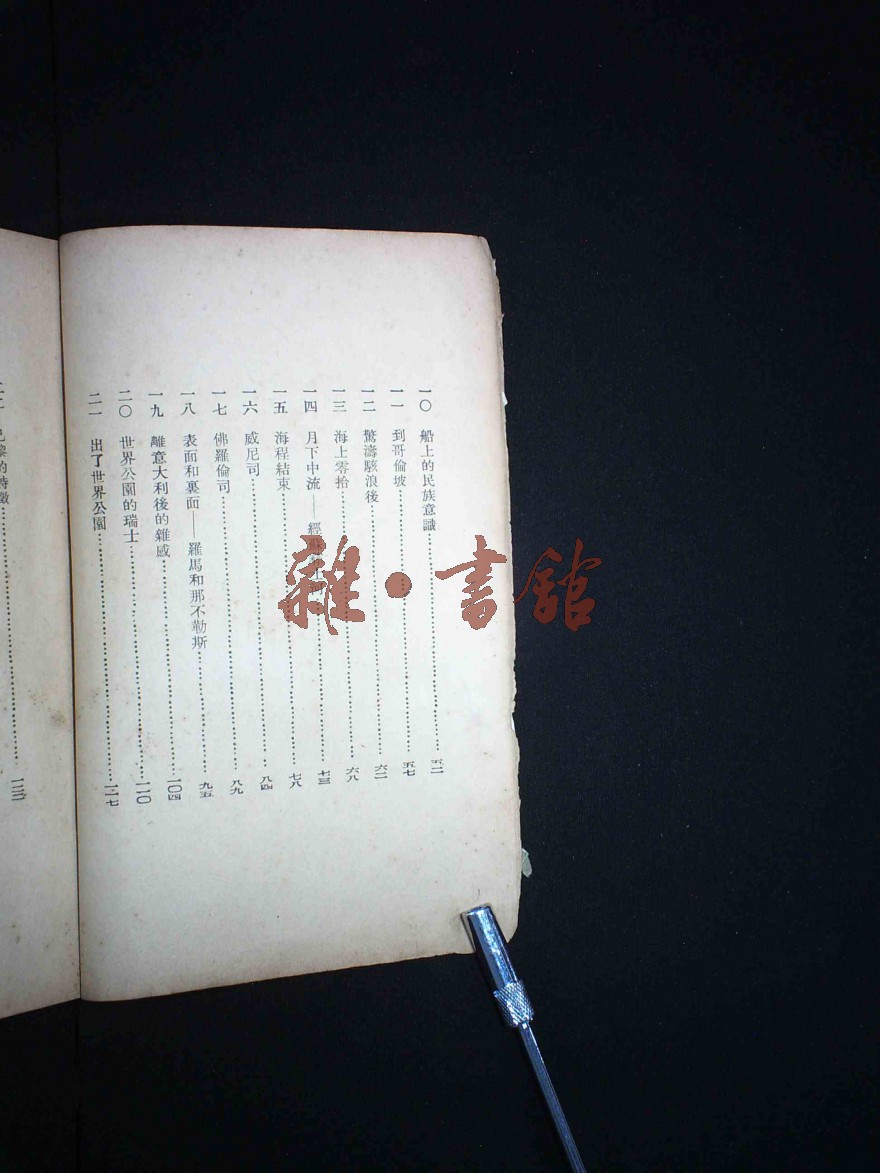 一〇 船上的民族意識……五二
一一 到哥倫坡……五七
一二 驚濤駭浪後……六二
一三 海上零拾……六八
一四 月下中流——經蘇……七三
一五 海程結束……七八
一六 威尼司……八四
一七 佛羅倫司……八九
一八 表面和裏面——羅馬和那不勒斯……九五
一九 離意大利後的雜感……一〇四
二〇 世界公園的瑞士……一一〇
二一 出了世界公園……一一七
巴黎的特徵……
雜·書館